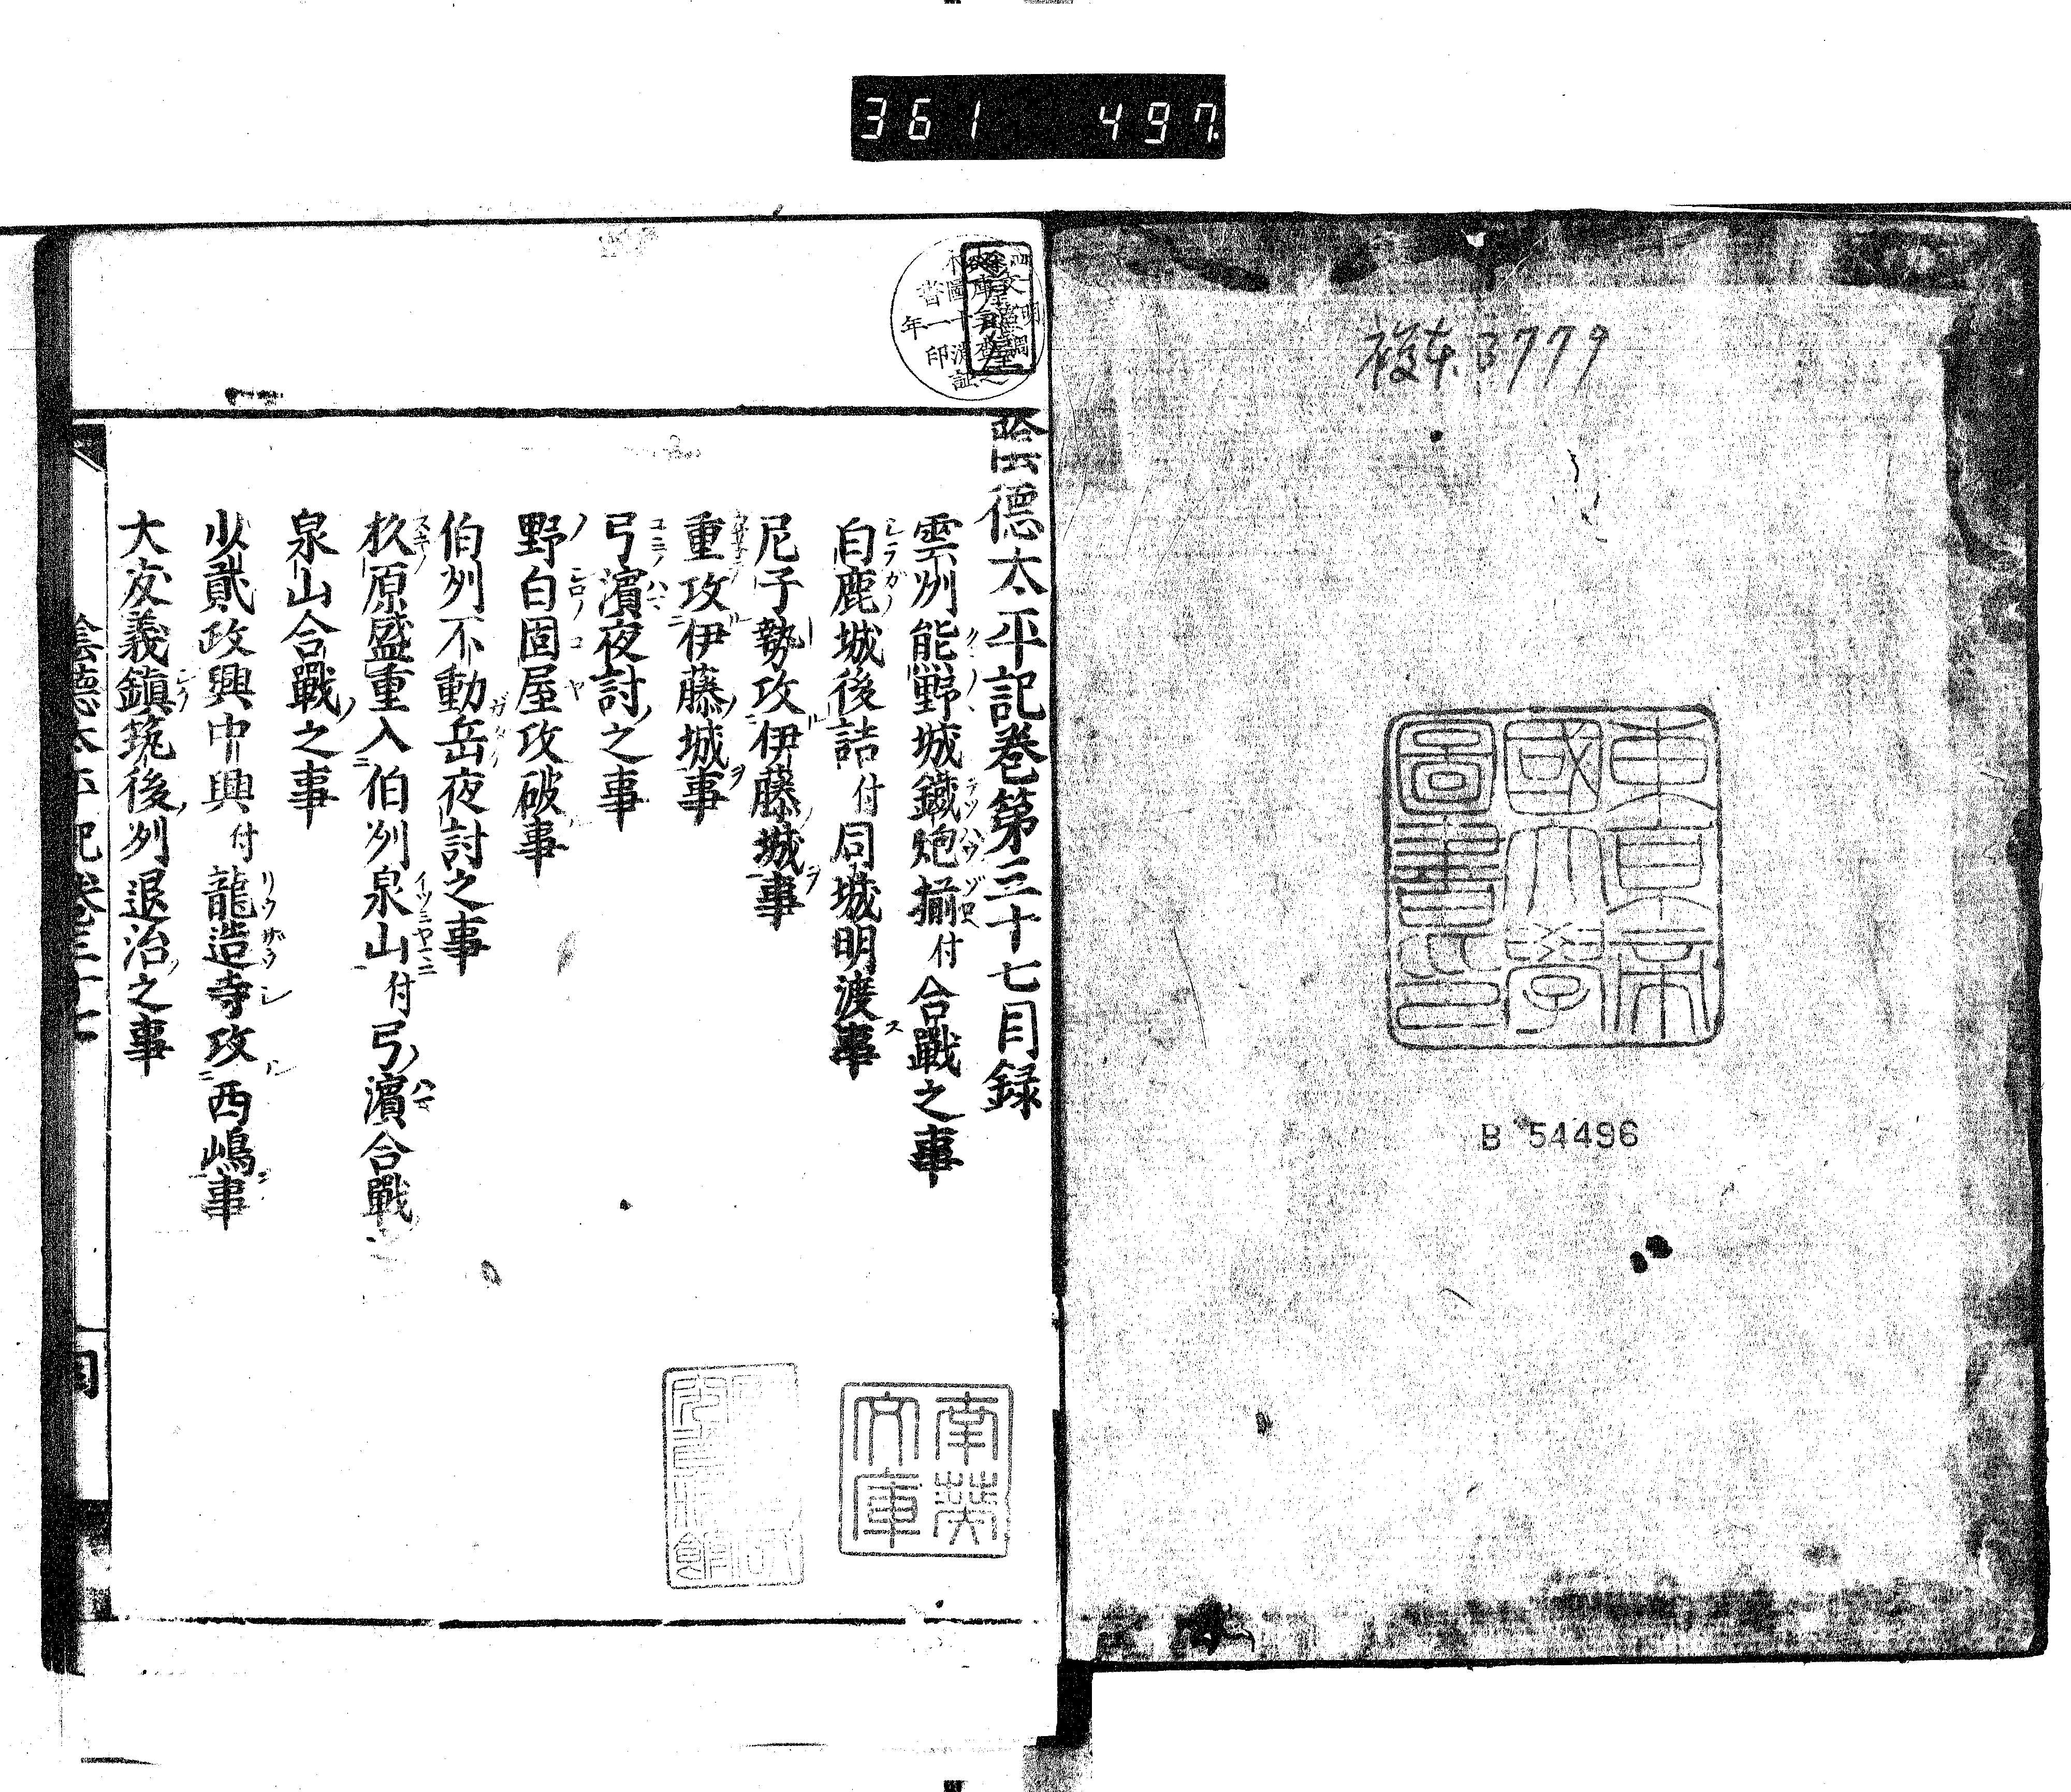 361 497
複本B779
東京帝
國大學
圖書之印
B 54496
陰德太平記卷第三十七目録
雲州能野城鐵炮揃付合戰之事
白鹿城後詰付同城明渡事
尼子勢攻伊藤城事
重攻伊藤城事
弓濱夜討之事
野白固屋攻破事
伯州不動岳夜討之事
杉原盛重入伯州泉山付弓濱合戰
泉山合戰之事
少貳政興中興付龍造寺攻西嶋事
大友義鎮筑後州退治之事
陰德太平記卷三十七
目
南葵
文庫